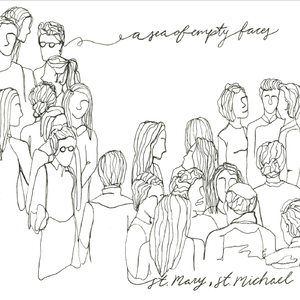 a sea of empty faces
St. Mary, St. Michael